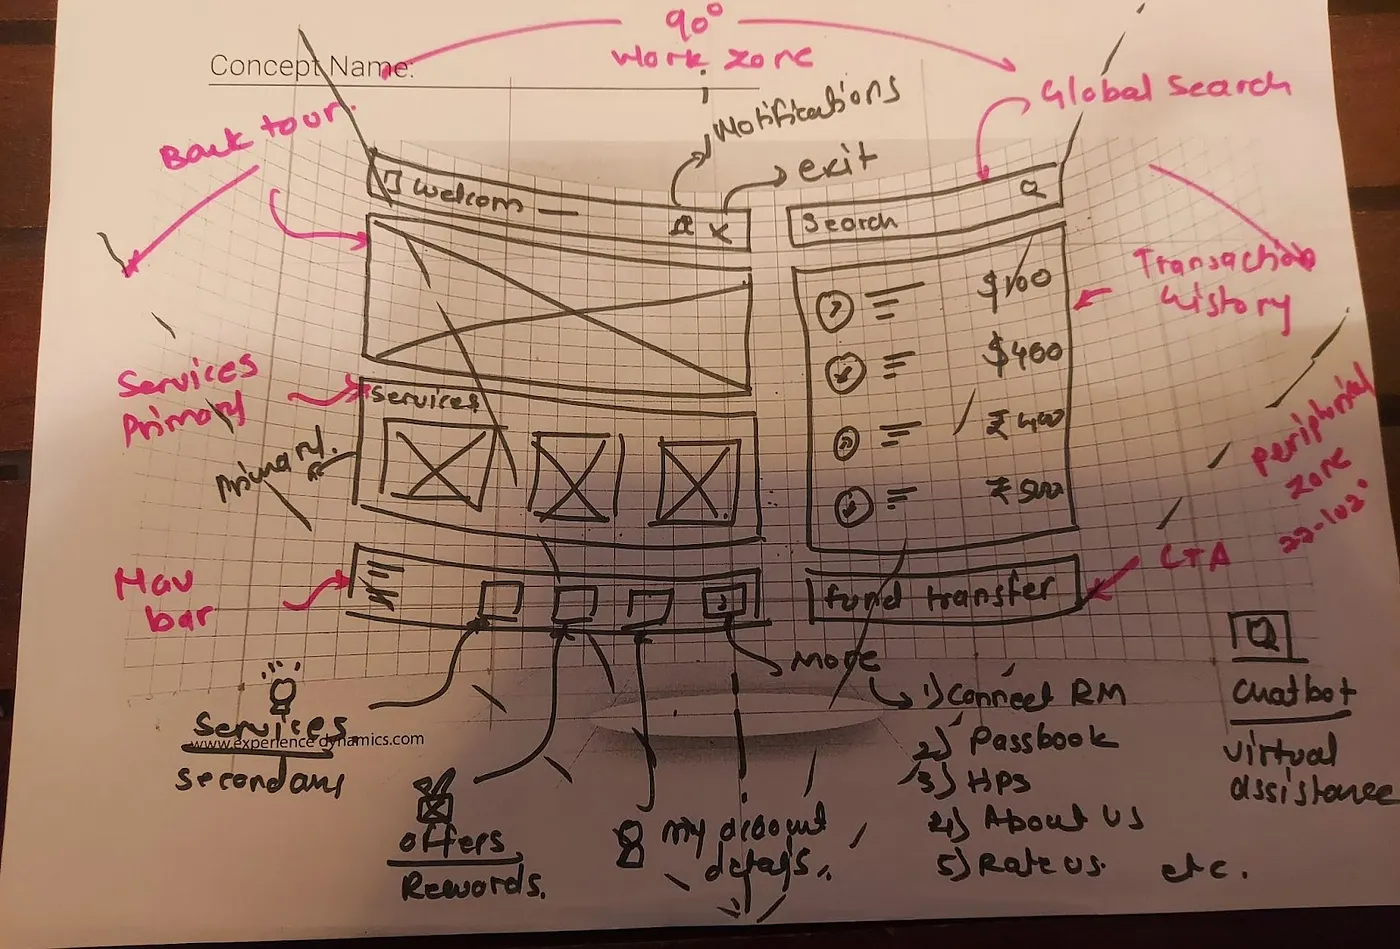 90°
work zone
Concept Name:
Global Search
Notifications
exit
Bank tour.
Welcom
Search
Transaction
History
$100
$400
₹400
₹500
Services
Primary
Services
Primary.
peripherial
zone
22-102°
Nav
bar
CTA
fund transfer
More
1) Connect RM
2) Passbook
3) HPS
4) About US
5) Rate us. etc.
Chatbot
virtual
assistance
Services
www.experiencedynamics.com
secondary
offers
Rewards.
My account
details.